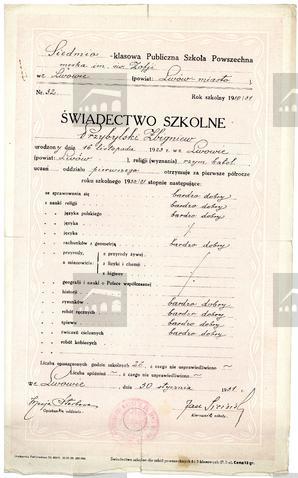 Siedmio -klasowa Publiczna Szkoła Powszechna
męska im. św. Zofji
we Lwowie (powiat: Lwów miasto)
Nr. 32. Rok szkolny 1930/31
ŚWIADECTWO SZKOLNE
Przybylski Zbigniew
urodzony dnia 16 listopada 1923 r. we Lwowie
(powiat: Lwów), religji (wyznania) rzym. katol.
uczeń oddziału pierwszego otrzymuje za pierwsze półrocze
roku szkolnego 1930/31 stopnie następujące:
za sprawowanie się bardzo dobry
z nauki religji bardzo dobry
" " języka polskiego bardzo dobry
" " języka
" " języka
" " rachunków z geometrją bardzo dobry
" " przyrody, a mianowicie: z przyrody żywej
z fizyki i chemji
z higjeny
" " geografji i nauki o Polsce współczesnej
" " historji
" " rysunków bardzo dobry
" " robót ręcznych bardzo dobry
" " śpiewu bardzo dobry
" " ćwiczeń cielesnych bardzo dobry
" " robót kobiecych
Liczba opuszczonych godzin szkolnych 26, z czego nie usprawiedliwiono ~
Liczba spóźnień ~, z czego nie usprawiedliwiono ~
we Lwowie, dnia 30 stycznia 1931
Opiekun oddziału: Jan
Kierownik szkoły.
Świadectwo szkolne dla szkół powszechnych Cena 12 gr.